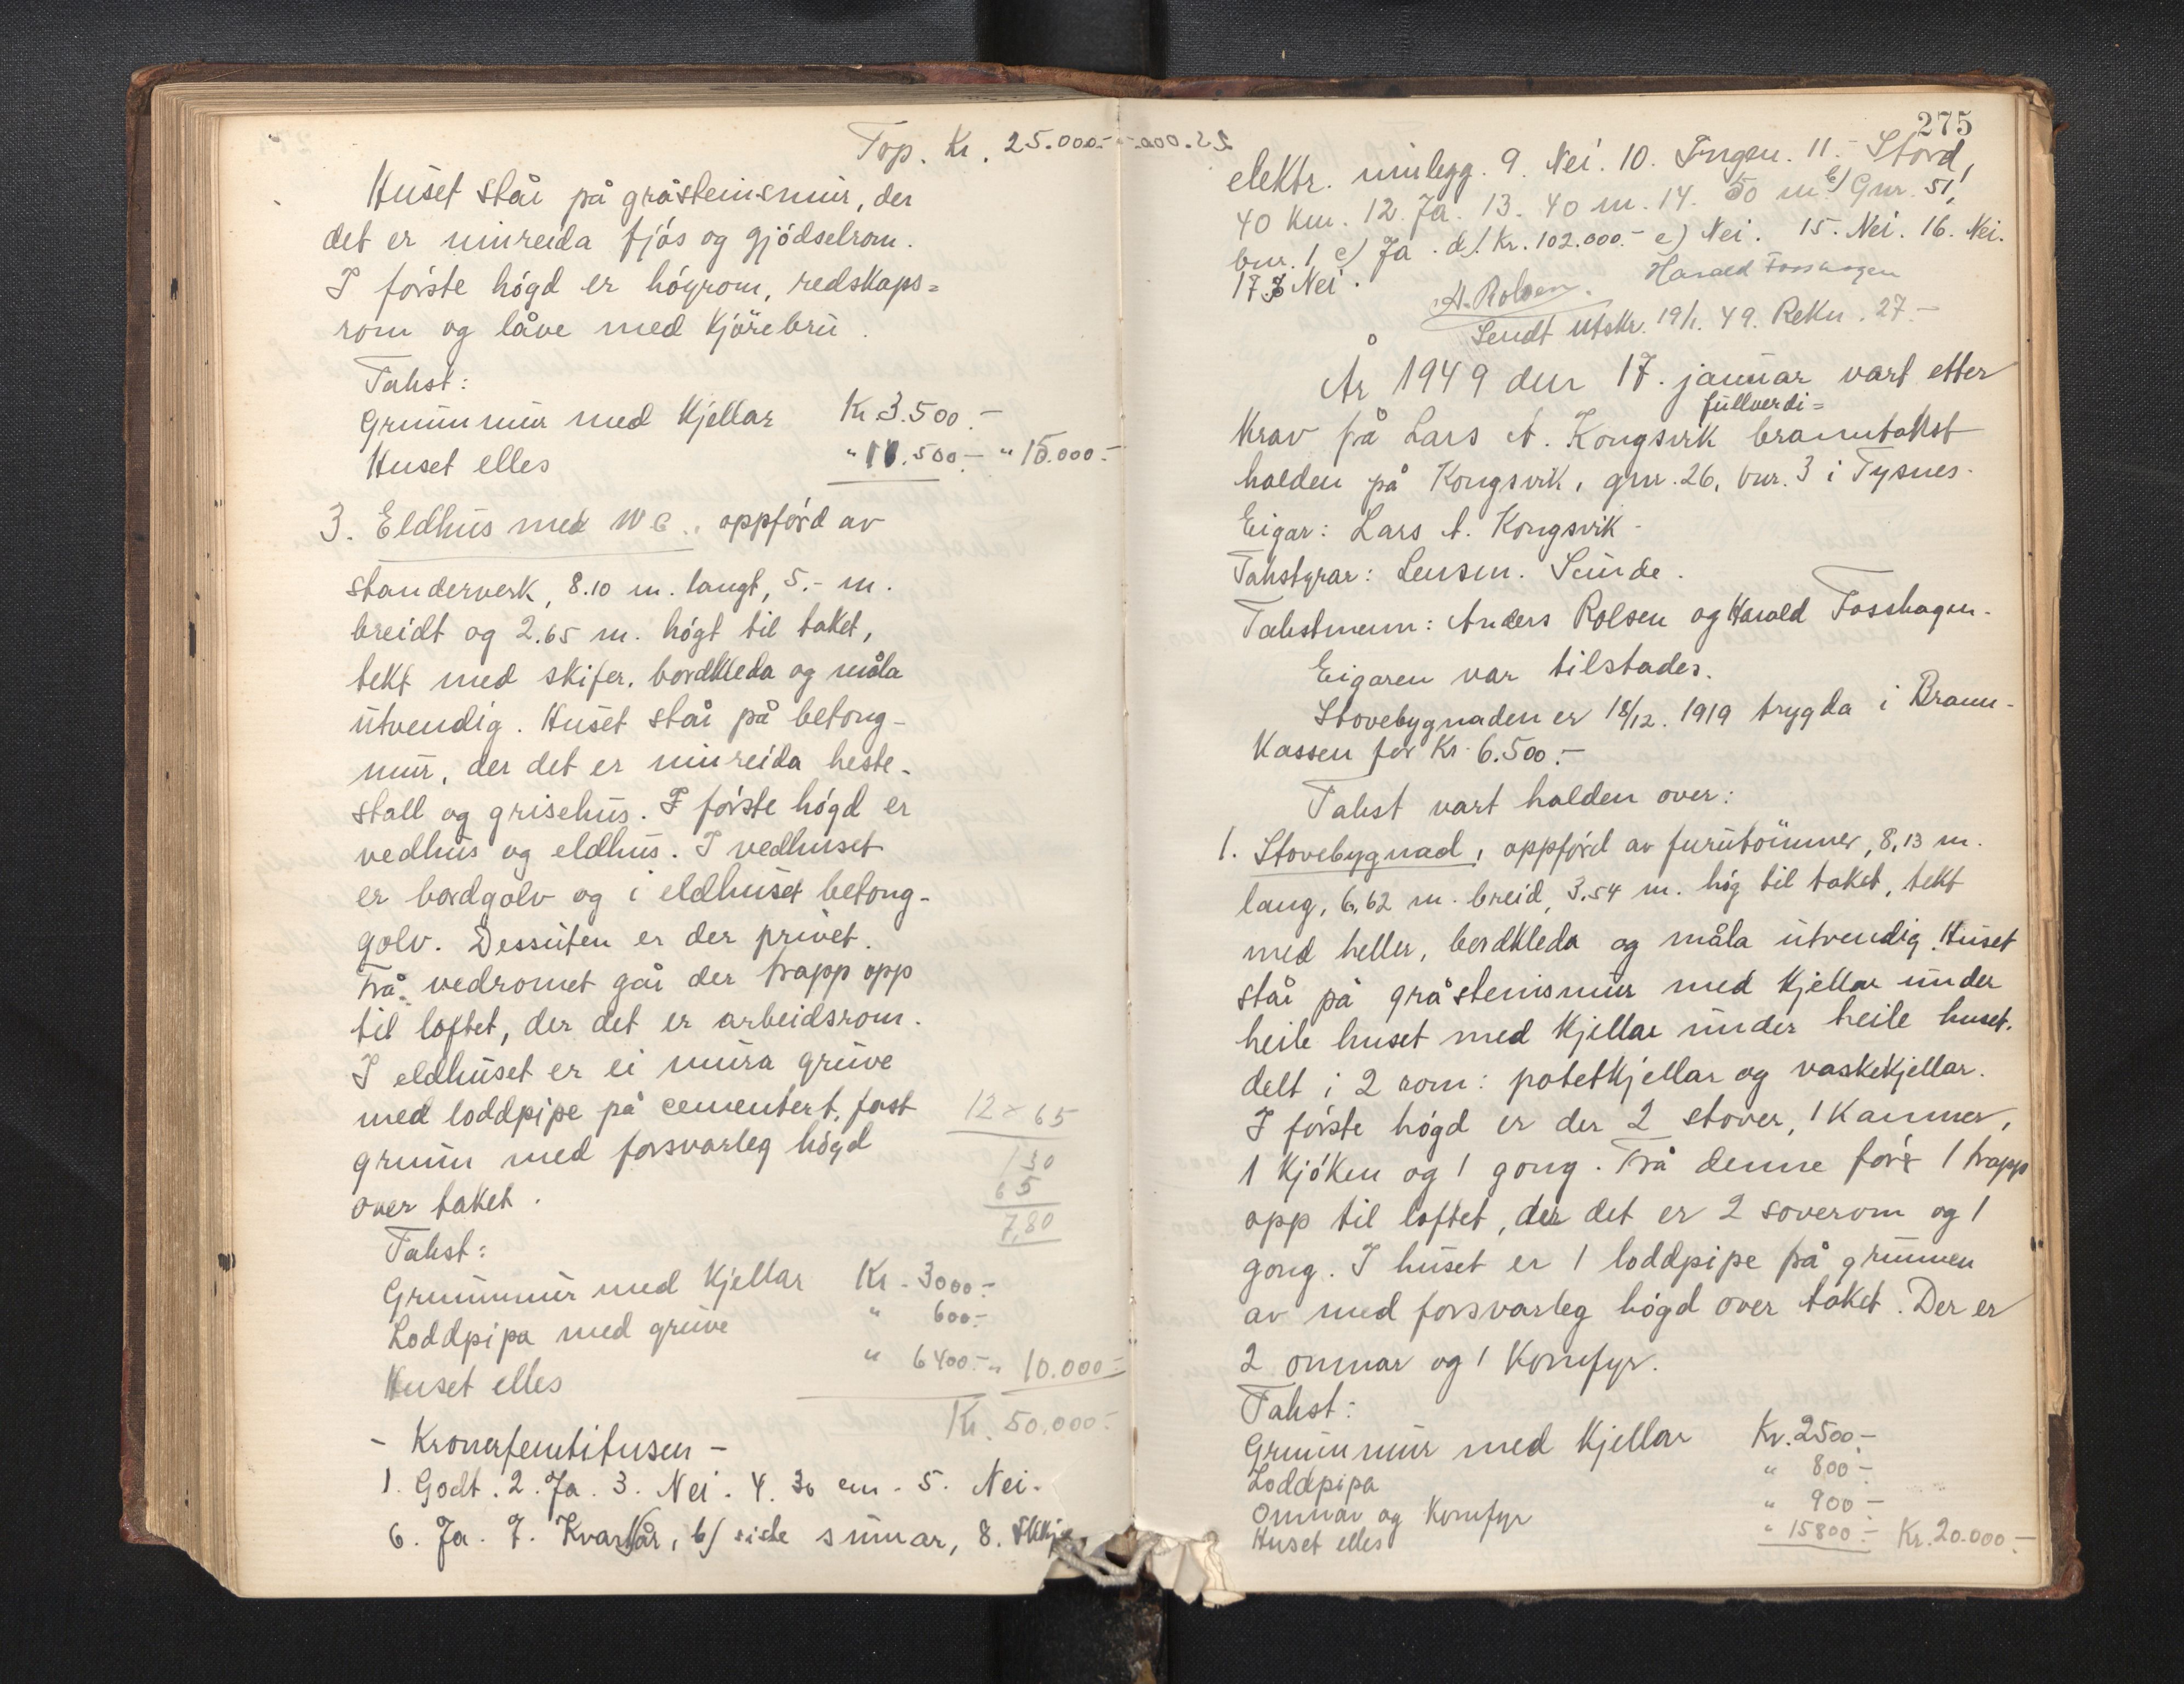 Top. Kr. 25.000.-
Huset står på gråsteinsmur, der
det er innreida fjós og gjódselrom.
I fórste hógd er hógrom, redskaps=
rom og låve med kjörebru.
Takst:
Grunnmur med kjellar Kr. 3.500.-
Huset elles " 11.500.- " 15.000.-
3. Eldhus med W C., oppfórd av
standerverk, 8.10 m. langt, 5.- m.
breidt og 2.65 m. hógt til taket,
tekt med skifer, bordkleda og måla
utvendig. Huset står på betong-
mur, der det er innreida heste-
stall og grisehus. I fórste hógd er
vedhus og eldhus. I vedhuset
er bordgolv og i eldhuset betong-
golv. Dessuten er der privet.
Frå vedromet går der trapp opp
til loftet, der det er arbeidsrom.
I eldhuset er ei mura gruve
med loddpipe på cementert, fast
grunn med forsvarleg hógd
over taket.
12 × 65
130
65
7,80
Takst:
Grunnmur med kjellar Kr. 3000.-
Loddpipa med gruve " 600.-
Huset elles " 6400.- " 10.000.-
Kr. 50.000.-
- Kronerfemtitusen -
1. Godt. 2. Ja. 3. Nei. 4. 30 cm. 5. Nei.
6. Ja. 7. Kvart år, b/ siste sumar, 8.
275
elektr. innlegg. 9. Nei. 10. Ingen. 11. Stord,
40 km. 12. Ja. 13. 40 m. 14. 50 m. b) Gnr. 51,
bnr. 1 c) Ja. d). Kr. 102.000.- e) Nei. 15. Nei. 16. Nei.
17 Nei.
A. Rolsen. Harald Fosshagen
Sendt utskr. 19/1. 49. Rekn. 27.-
År 1949 den 17. januar vart etter
fullverdi=
krav frå Lars A. Kongsvik branntakst
halden på Kongsvik, gnr. 26, bnr. 3 i Tysnes.
Eigar: Lars A. Kongsvik.
Takstyrar: Lensm. Sunde.
Takstmenn: Anders Rolsen og Harald Fosshagen.
Eigaren var tilstades.
Stovebygnaden er 18/12. 1919 trygda i Brann-
kassen for Kr. 6.500.-
Takst vart halden over:
1. Stovebygnad, oppfórd av furutömmer, 8,13 m.
lang, 6,62 m. breid, 3.54 m. hóg til taket, tekt
med heller, bordkleda og måla utvendig. Huset
står på gråsteinsmur med kjellar under
heile huset med kjellar under heile huset.
delt i 2 rom: potetkjellar og vaskekjellar.
I fórste hógd er der 2 stover, 1 kammer,
1 kjóken og 1 gong. Frå denne fórer 1 trapp
opp til loftet, der det er 2 soverom og 1
gong. I huset er 1 loddpipe på grunnen
av med forsvarleg hógd over taket. Der er
2 omnar og 1 komfyr.
Takst:
Grunnmur med kjellar Kr. 2500.-
Loddpipa " 800.-
Omnar og komfyr " 900.-
Huset elles " 15800.- Kr. 20.000.-